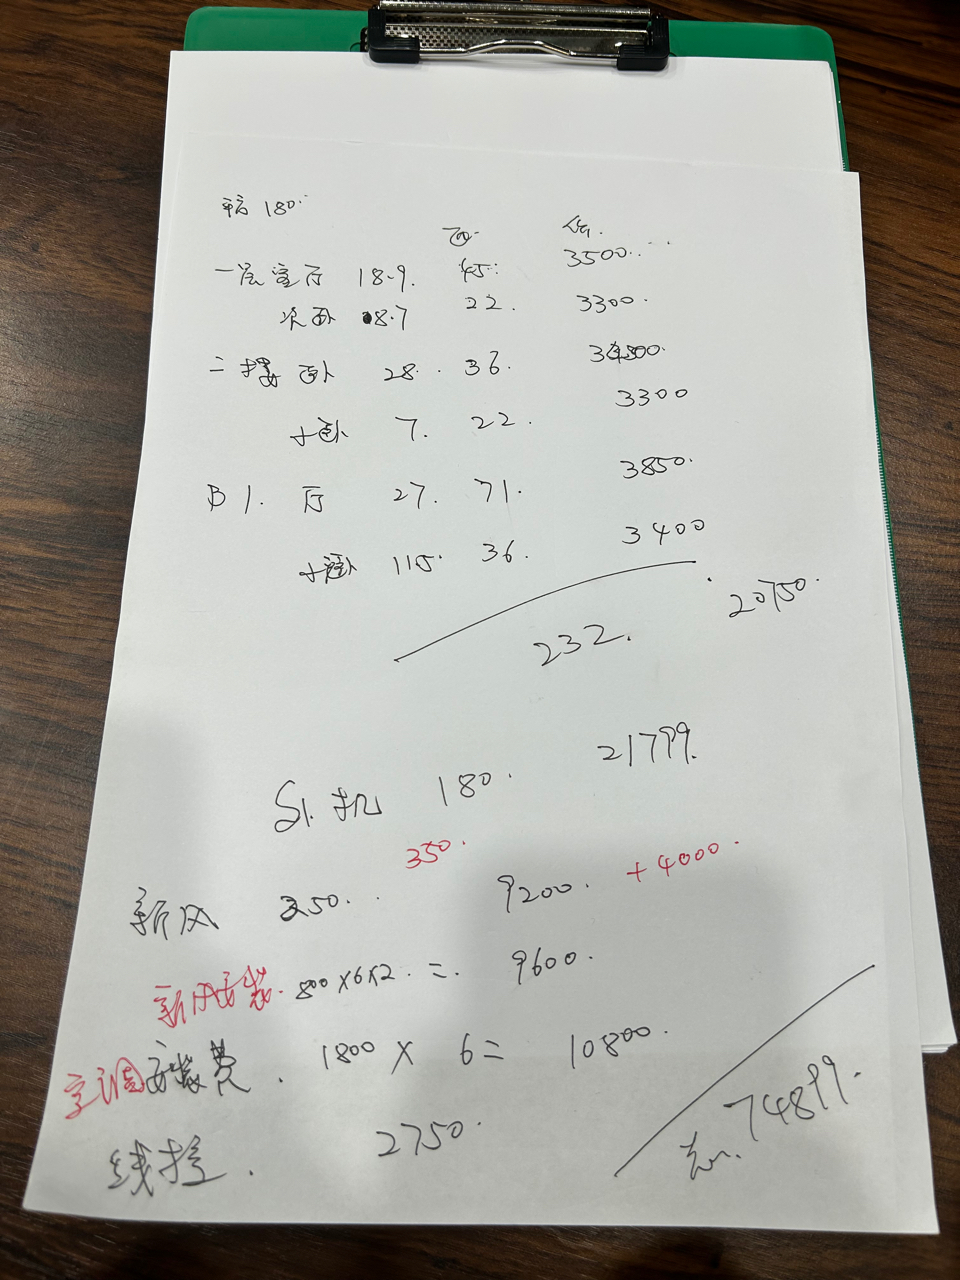 180.
一层客厅 18.9. 45. 3500.
次卧 8.7 22. 3300.
二楼 卧 28. 36. 3400.
小卧 7. 22. 3300
B1. 厅 27. 71. 3850.
小卧 115. 36. 3400
232. 20750.
机 180. 21799.
350.
新风 250. 9200. +4000.
新风安装. 800×6×2. = 9600.
空调安装费. 1800 × 6= 10800.
线控. 2750. 74899.